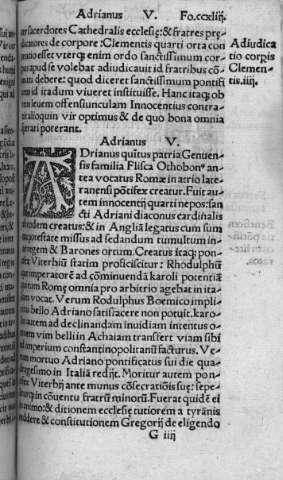 Adrianus V. Fo.ccxliij.
ter sacerdores Cathedralis ecclesię: & fratres prę
dicatores de corpore: Clementis quarti orta con
ratio esset vterq; enim ordo sanctissimum cor-
apud se volebat adiudicauit id fratribus cō
ni debere: quod diceret sanctissimum pontifi
em id itadum viueret instituisse. Hanc itaq; ob
em leuem offensiunculam Innocentius contra
t alioquin vir optimus & de quo bona omnia
perari poterant.
Adiudica
tio corpis
Clemen-
tis.iiij.
Adrianus V.
ADrianus quītus patria Genuen
sis familia Flisca Othobonꝰ an
tea vocatus Romæ in atrio late
ranensi pōtifex creatur. Fuit au
tem innocentij quarti nepos: san
cti Adriani diaconus cardinalis
eodem creatus: & in Angliā legatus cum sum
potestate missus ad sedandum tumultum in
regem & Barones ortum. Creatus itaq; pon-
ex Viterbiū statim proficiscitur: Rhodulphū
imperatorē ad cōminuendā karoli potentiā
tum Romę omnia pro arbitrio agebat in ita
am vocat. Verum Rodulphus Boemico impli
bello Adriano satisfacere non potuit. karo-
autem ad declinandam inuidiam intentus o-
em vim belli in Achaiam transfert viam sibi
d imperium constantinopolitanū facturus. Ve
mortuo Adriano pontificatus sui die qua-
gesimo in Italiā redijt. Moritur autem pon-
ex Viterbij ante munus cōsecratiōis suę: sepe-
turq; in cōuentu fratrū minorū. Fuerat quidē ei
animo: & ditionem ecclesię tutiorem a tyrānis
reddere & constitutionem Gregorij de eligendo
G iiij